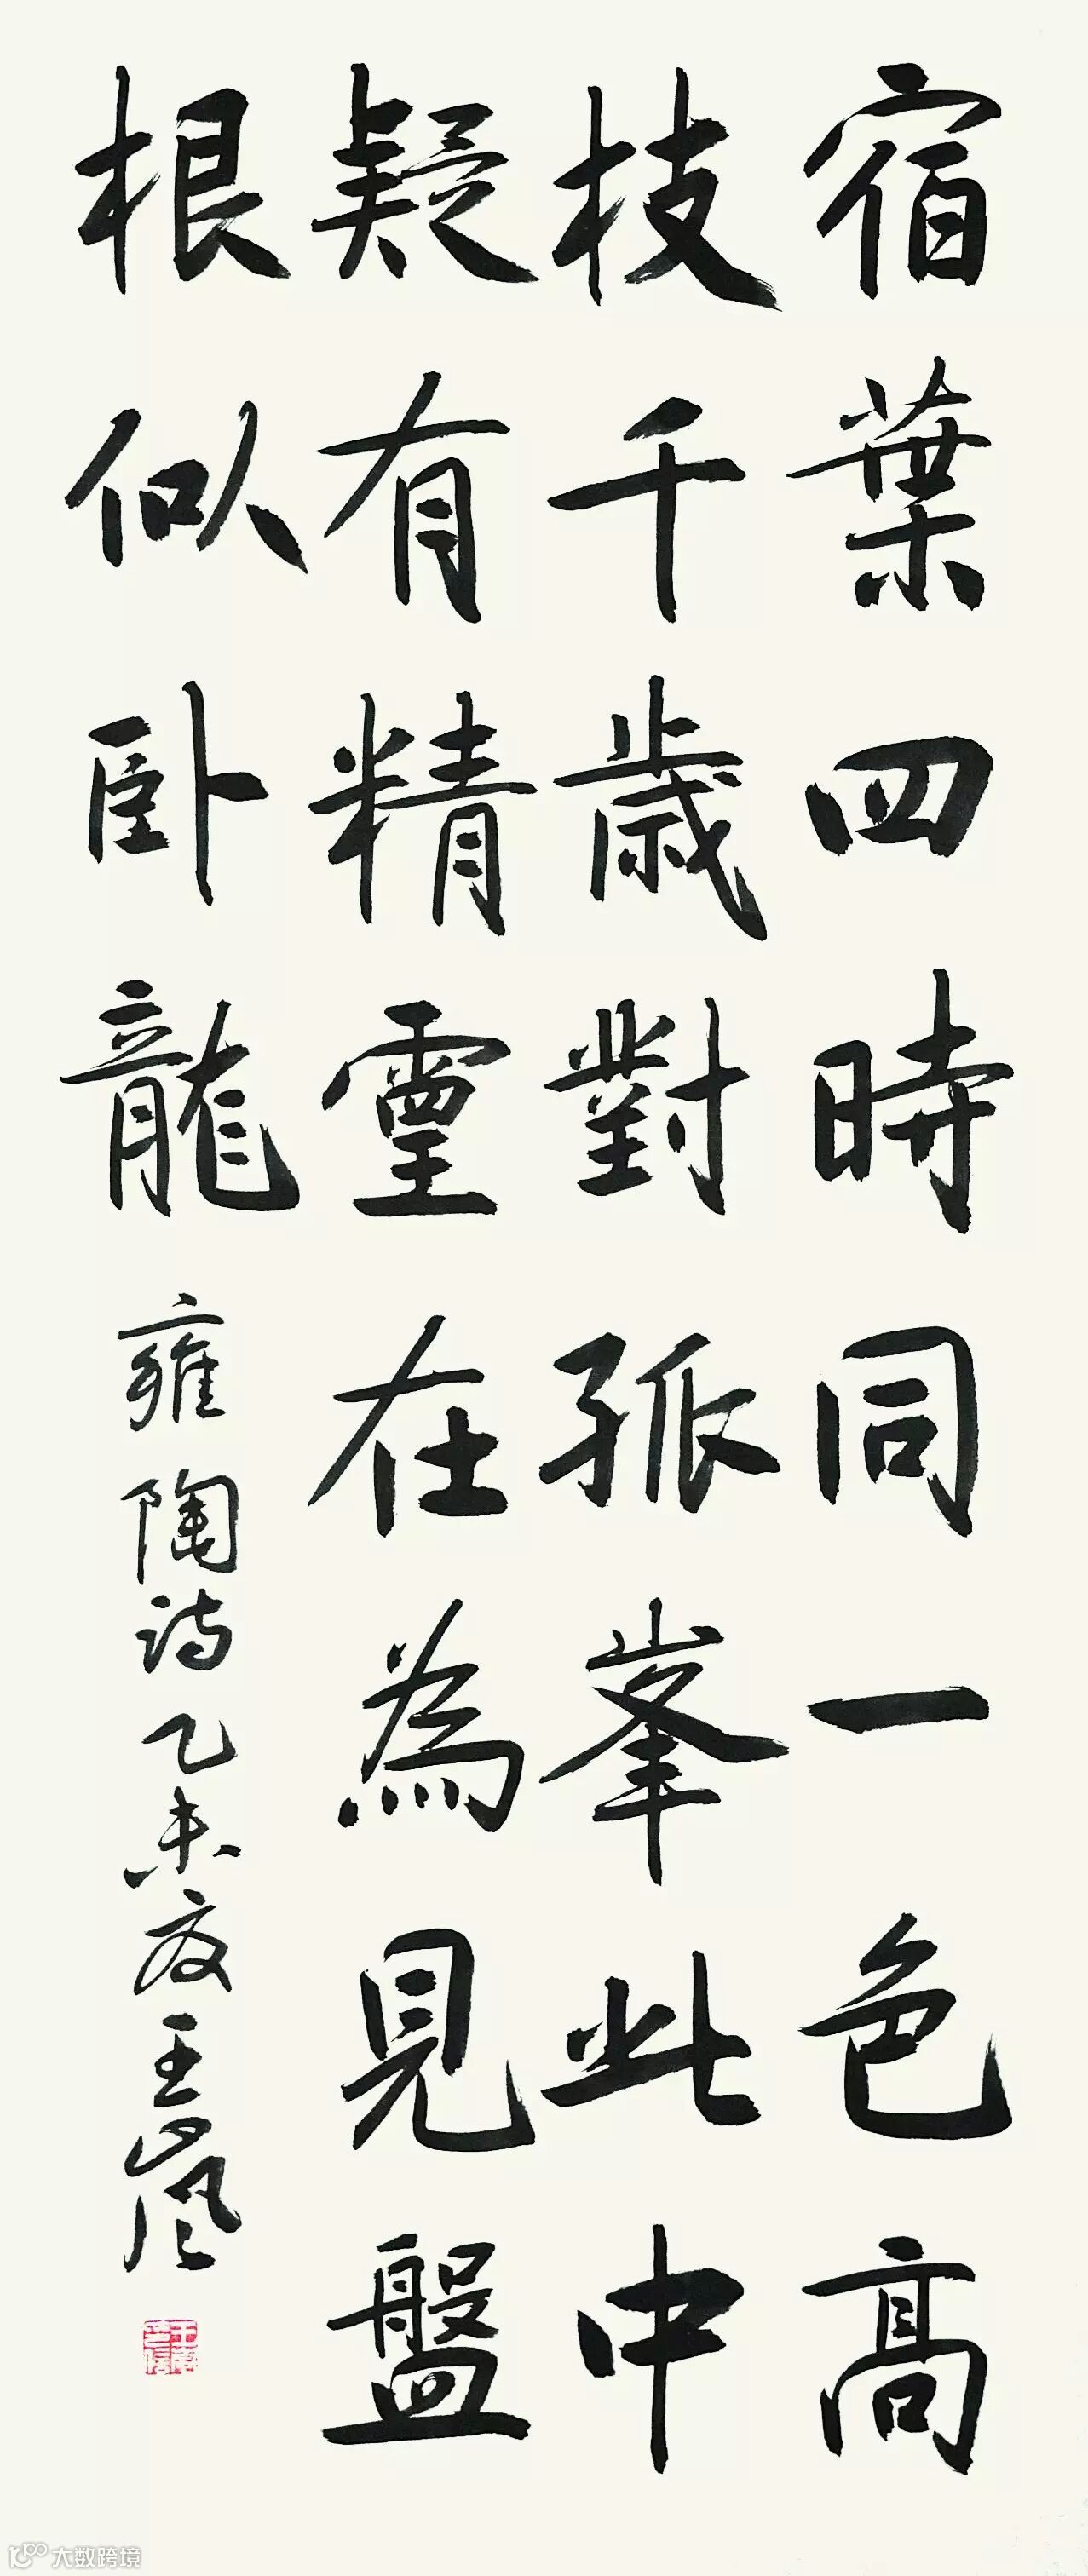 宿葉四時同一色高
枝千歳對孤峯此中
疑有精靈在為見盤
根似卧龍
雍陶詩乙未夏王嵐
大数跨境